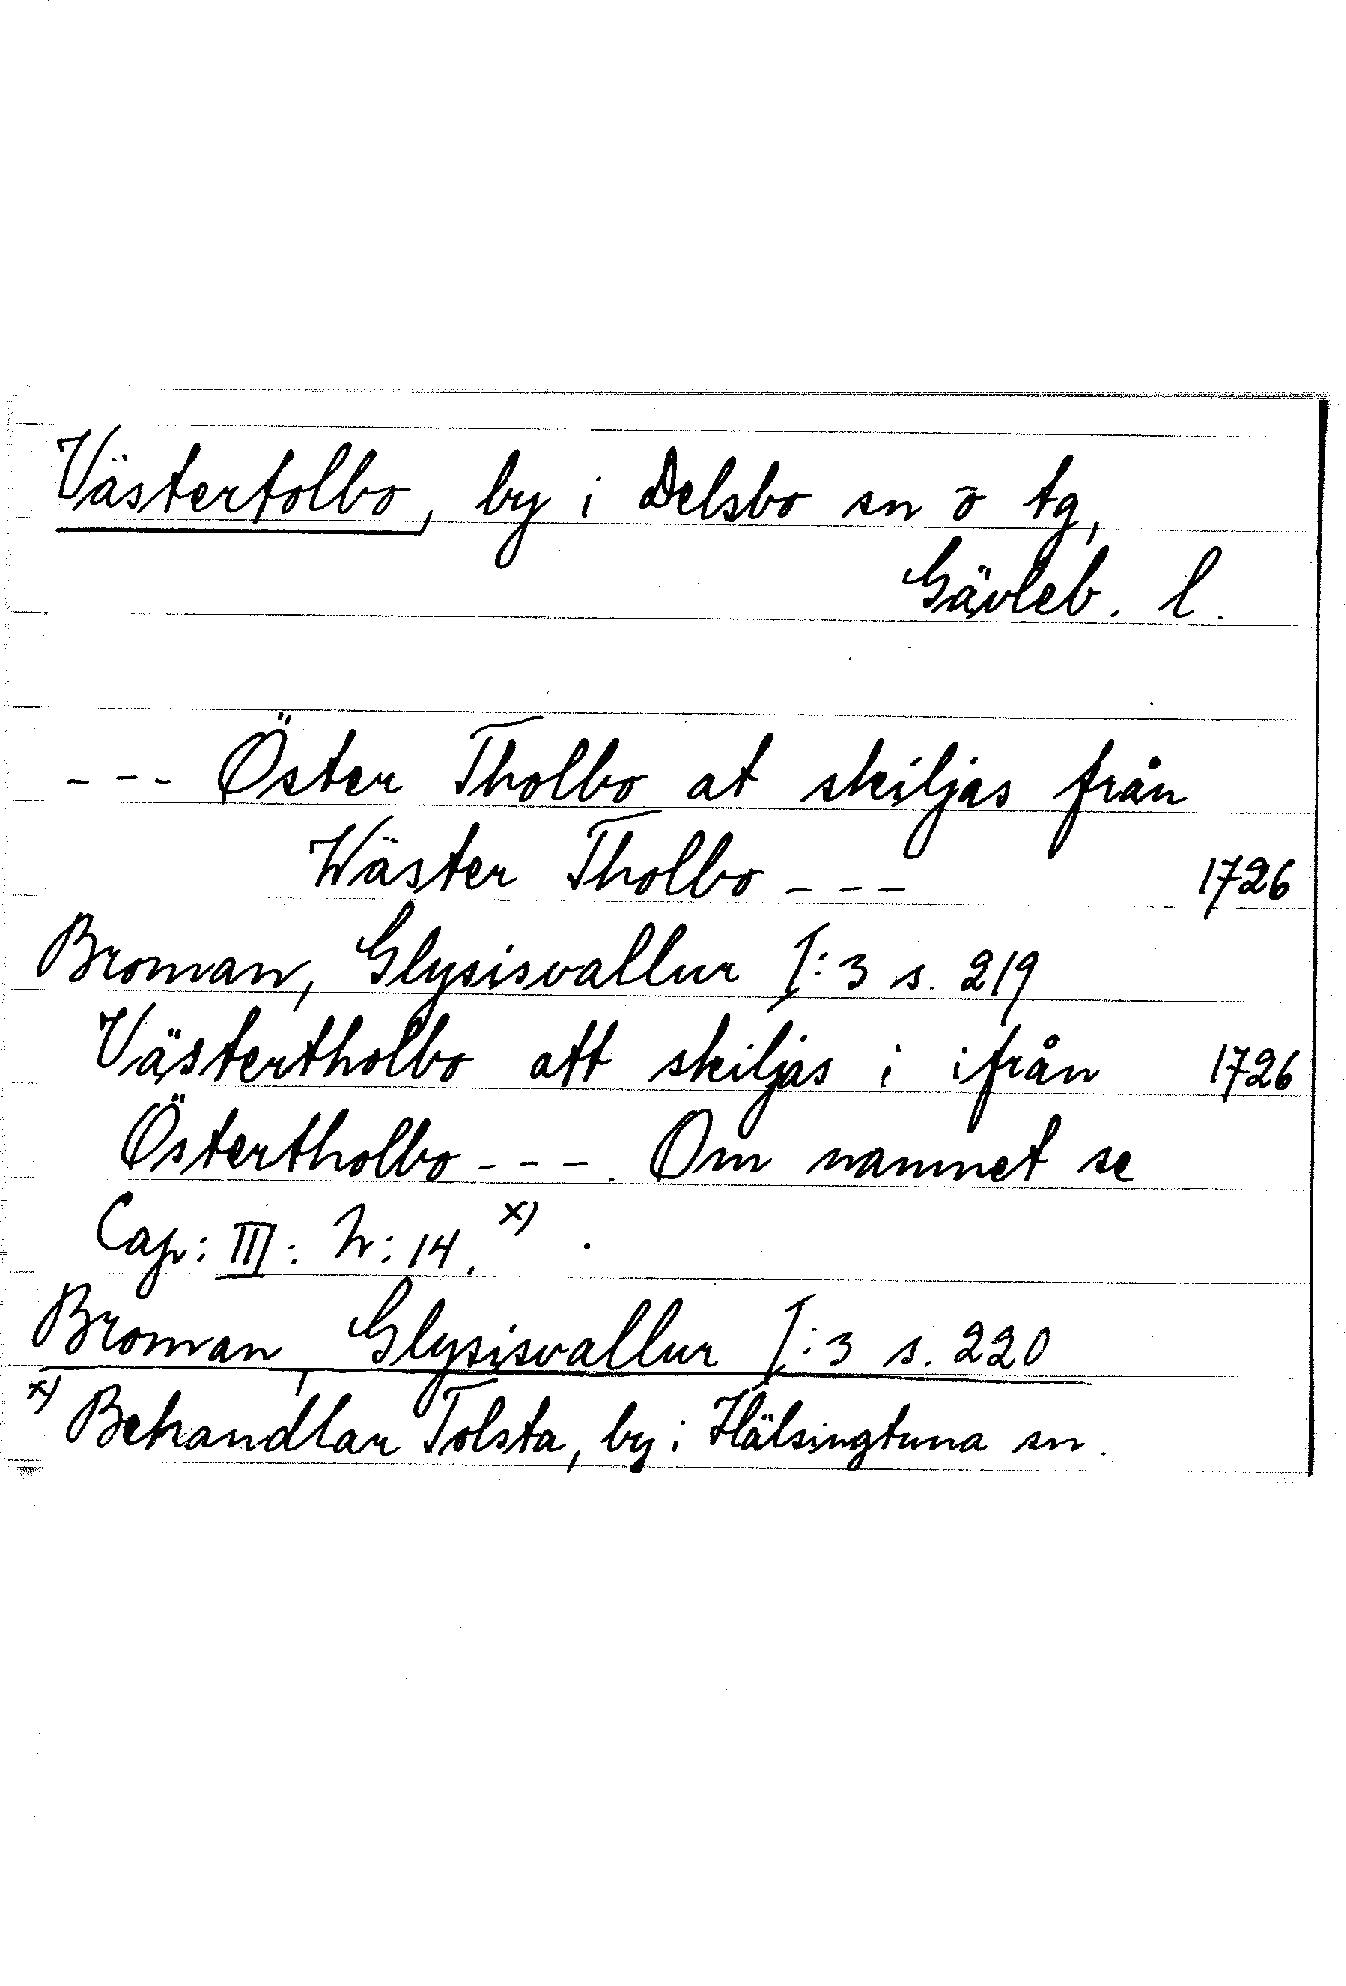 Västertolbo, by i Delsbo sn o tg,
Gävleb. l.
--- Öster Tholbo at skiljas från
Wäster Tholbo --- 1726
Broman, Glysisvallur I:3 s. 219
Västertholbo att skiljas i ifrån 1726
Östertholbo ---. Om namnet se
Cap: III: N: 14. x)
Broman, Glysisvallur I:3 s. 220
x) Behandlar Tolsta, by i Hälsingtuna sn.